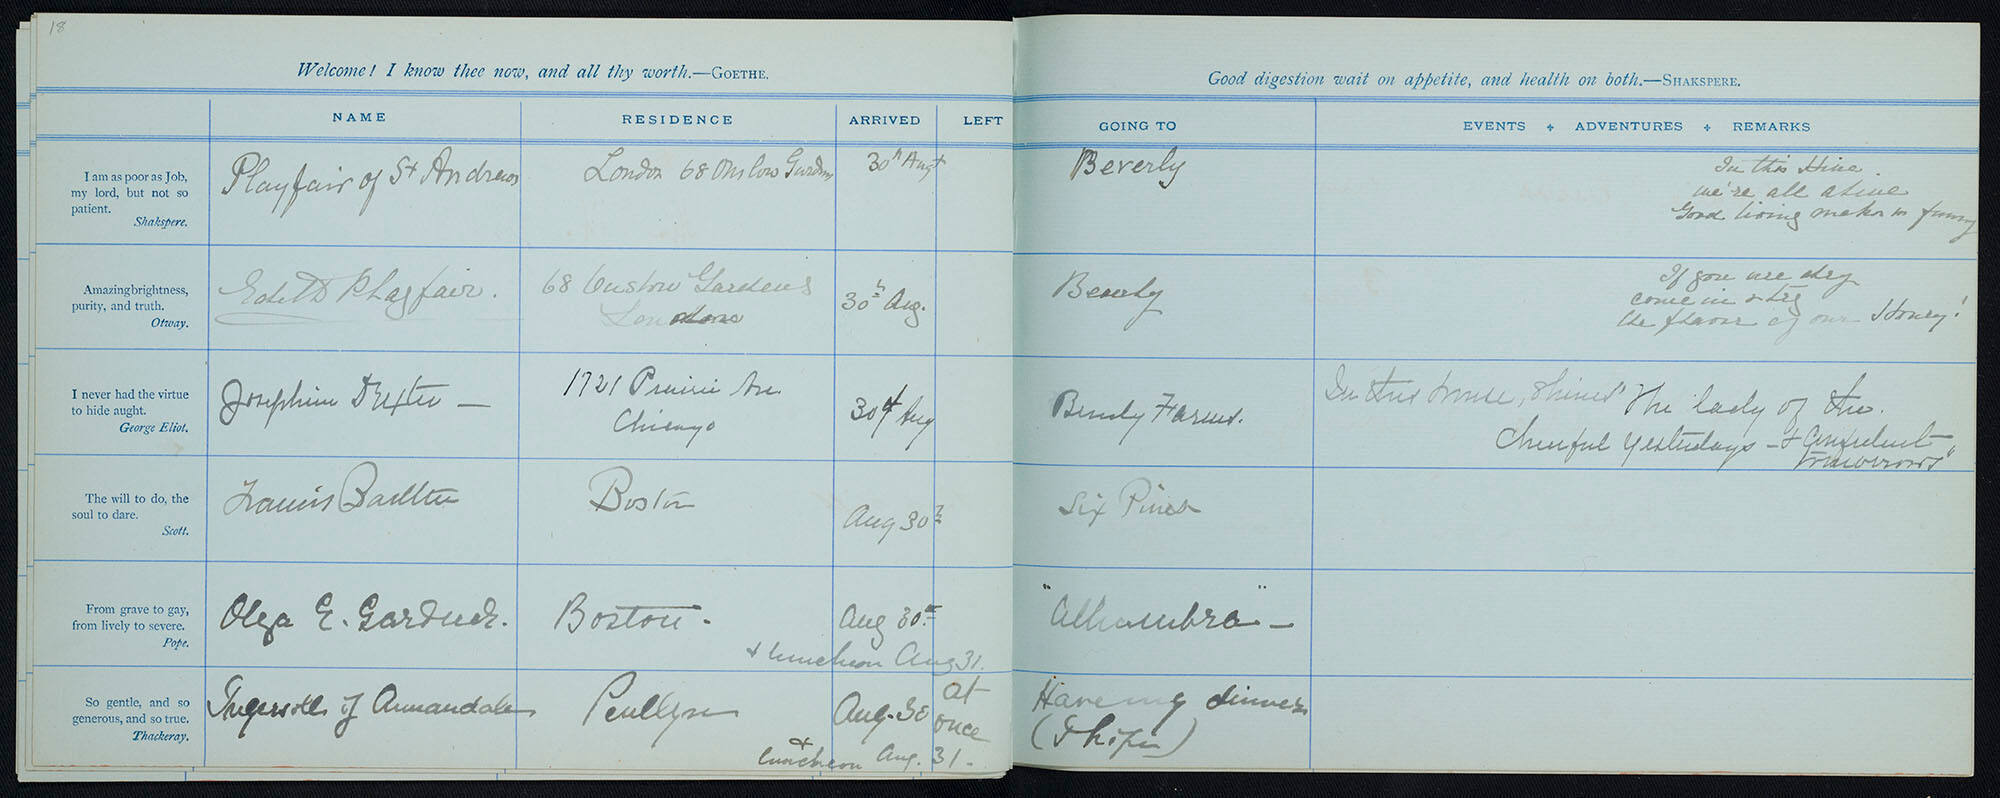 18
Welcome! I know thee now, and all thy worth.—GOETHE.
Good digestion wait on appetite, and health on both.—SHAKSPERE.
NAME RESIDENCE ARRIVED LEFT GOING TO EVENTS + ADVENTURES + REMARKS
I am as poor as Job,
my lord, but not so
patient.
Shakspere.
Playfair of St Andrews
London 68 Onslow Gardens
30th Augt
Beverly
In this Hive
we're all alive
Good living makes us funny
Amazing brightness,
purity, and truth.
Otway.
Edith Playfair.
68 Onslow Gardens
London
30th Aug.
Beverly
If you are dry
come in & try
the flavor of our Honey!
I never had the virtue
to hide aught.
George Eliot.
Josephine Dexter —
1721 Prairie Ave.
Chicago
30th Aug
Beverly Farms.
In this house, shines "The lady of the
cheerful yesterdays — & confident
tomorrows"
The will to do, the
soul to dare.
Scott.
Francis Bartlett
Boston
Aug 30th
Six Pines
From grave to gay,
from lively to severe.
Pope.
Olga E. Gardner.
Boston.
Aug 30th
& luncheon Aug 31.
"Alhambra" —
So gentle, and so
generous, and so true.
Thackeray.
Ingersoll of Annandale
Penllyn
Aug. 30
at
once
& luncheon Aug. 31.
Having dinner